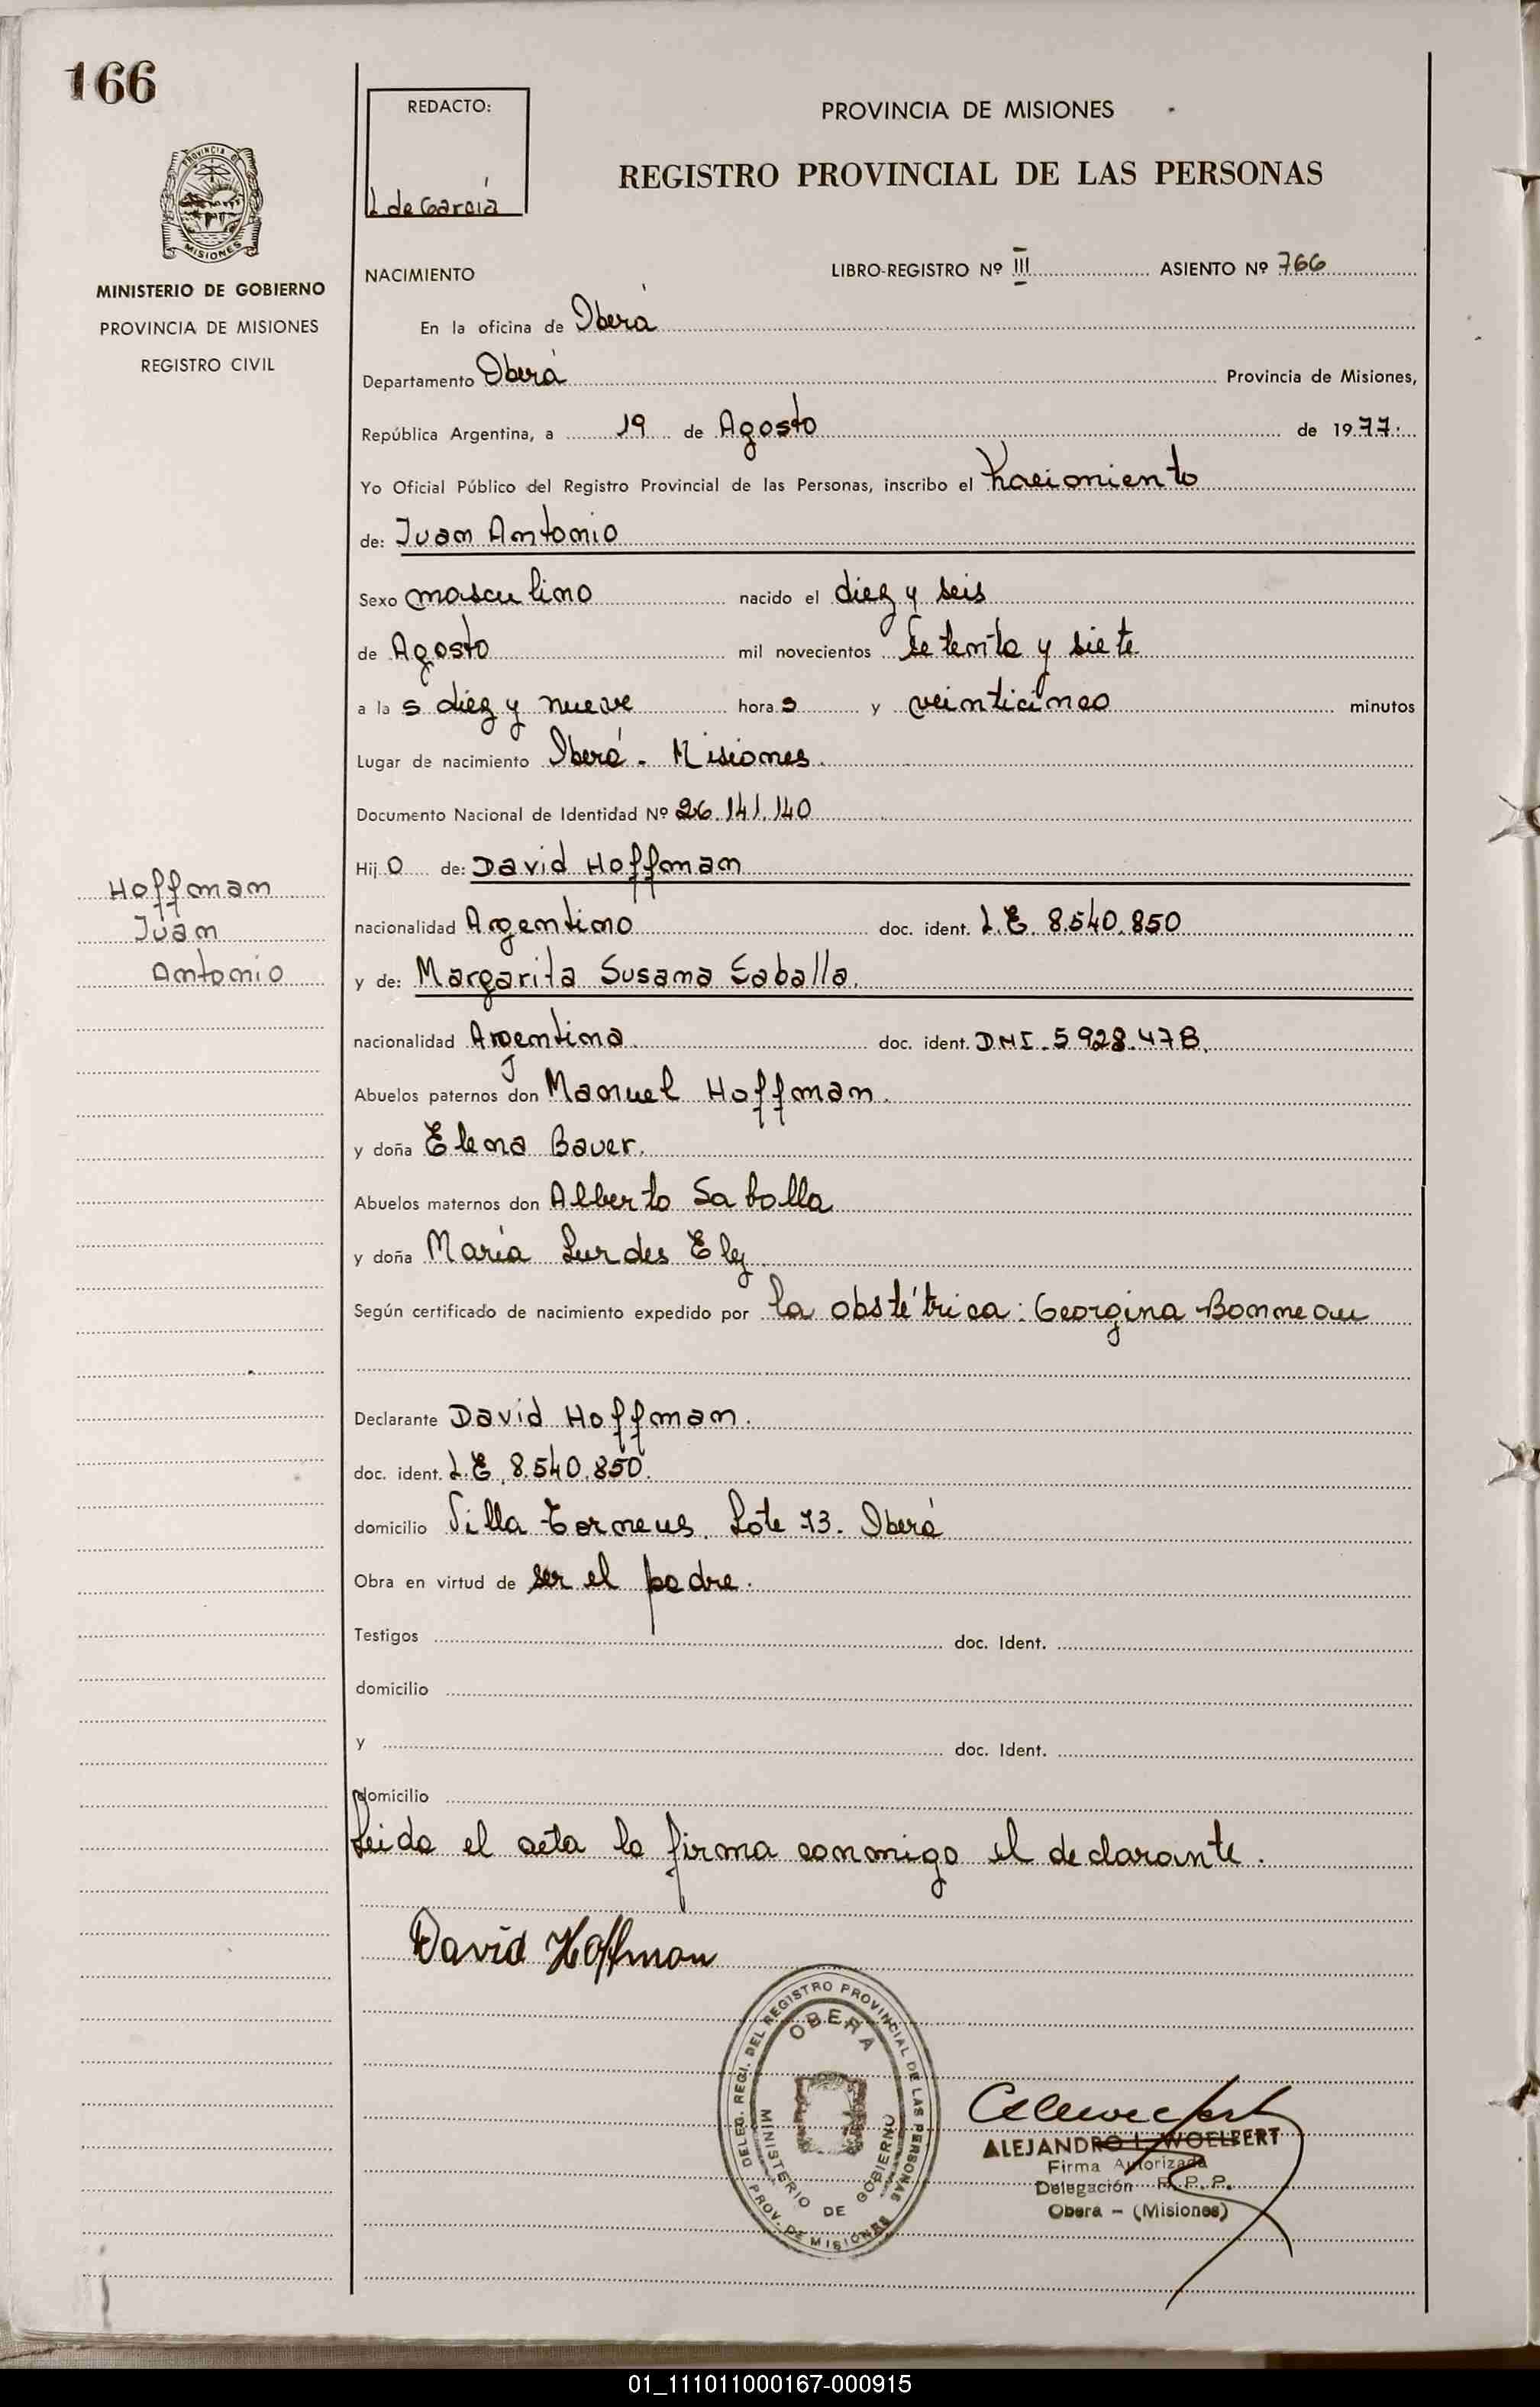 166
REDACTO:
L de García
PROVINCIA DE MISIONES
REGISTRO PROVINCIAL DE LAS PERSONAS
PROVINCIA DE
MISIONES
MINISTERIO DE GOBIERNO
PROVINCIA DE MISIONES
REGISTRO CIVIL
NACIMIENTO LIBRO-REGISTRO Nº III ASIENTO Nº 766
En la oficina de Oberá
Departamento Oberá Provincia de Misiones,
República Argentina, a 19 de Agosto de 1977.
Yo Oficial Público del Registro Provincial de las Personas, inscribo el Nacimiento
de: Juan Antonio
Sexo masculino nacido el diez y seis
de Agosto mil novecientos Setenta y siete
a las diez y nueve horas y veinticinco minutos
Lugar de nacimiento Oberá - Misiones.
Documento Nacional de Identidad Nº 26.141.140
Hijo de: David Hoffman
nacionalidad Argentino doc. ident. L.E. 8.540.850
y de: Margarita Susana Saballa.
nacionalidad Argentina doc. ident. DNI. 5928.478.
Abuelos paternos don Manuel Hoffman.
y doña Elena Bauer.
Abuelos maternos don Alberto Saballa
y doña María Lurdes Ely
Según certificado de nacimiento expedido por la obstétrica: Georgina Bonneau
Declarante David Hoffman.
doc. ident. L.E. 8.540.850.
domicilio Villa Torneus. Lote 73. Oberá
Obra en virtud de ser el padre.
Testigos doc. Ident.
domicilio
y doc. Ident.
domicilio
Leida el acta la firma conmigo el declarante.
David Hoffman
Hoffman
Juan
Antonio
DELEG. REGI. DEL REGISTRO PROVINCIAL DE LAS PERSONAS
OBERA
MINISTERIO DE GOBIERNO
PROV. DE MISIONES
ALEJANDRO L. WOELFERT
Firma Autorizada
Delegación R. P. P.
Obera - (Misiones)
01_111011000167-000915